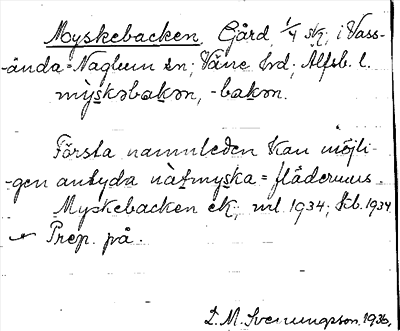 Myskebacken, Gård 1/4 sk; i Vass-
-ända-Naglum sn; Väne hd; Älfsb. l.
mỳskəbakən, -bakən.
Första namnleden kan möjli-
-gen antyda nàtmyska = flädermus.
Myskebacken ek; ml 1934; Kb. 1934
Prep. på.
L. M. Svenungsson. 1936.